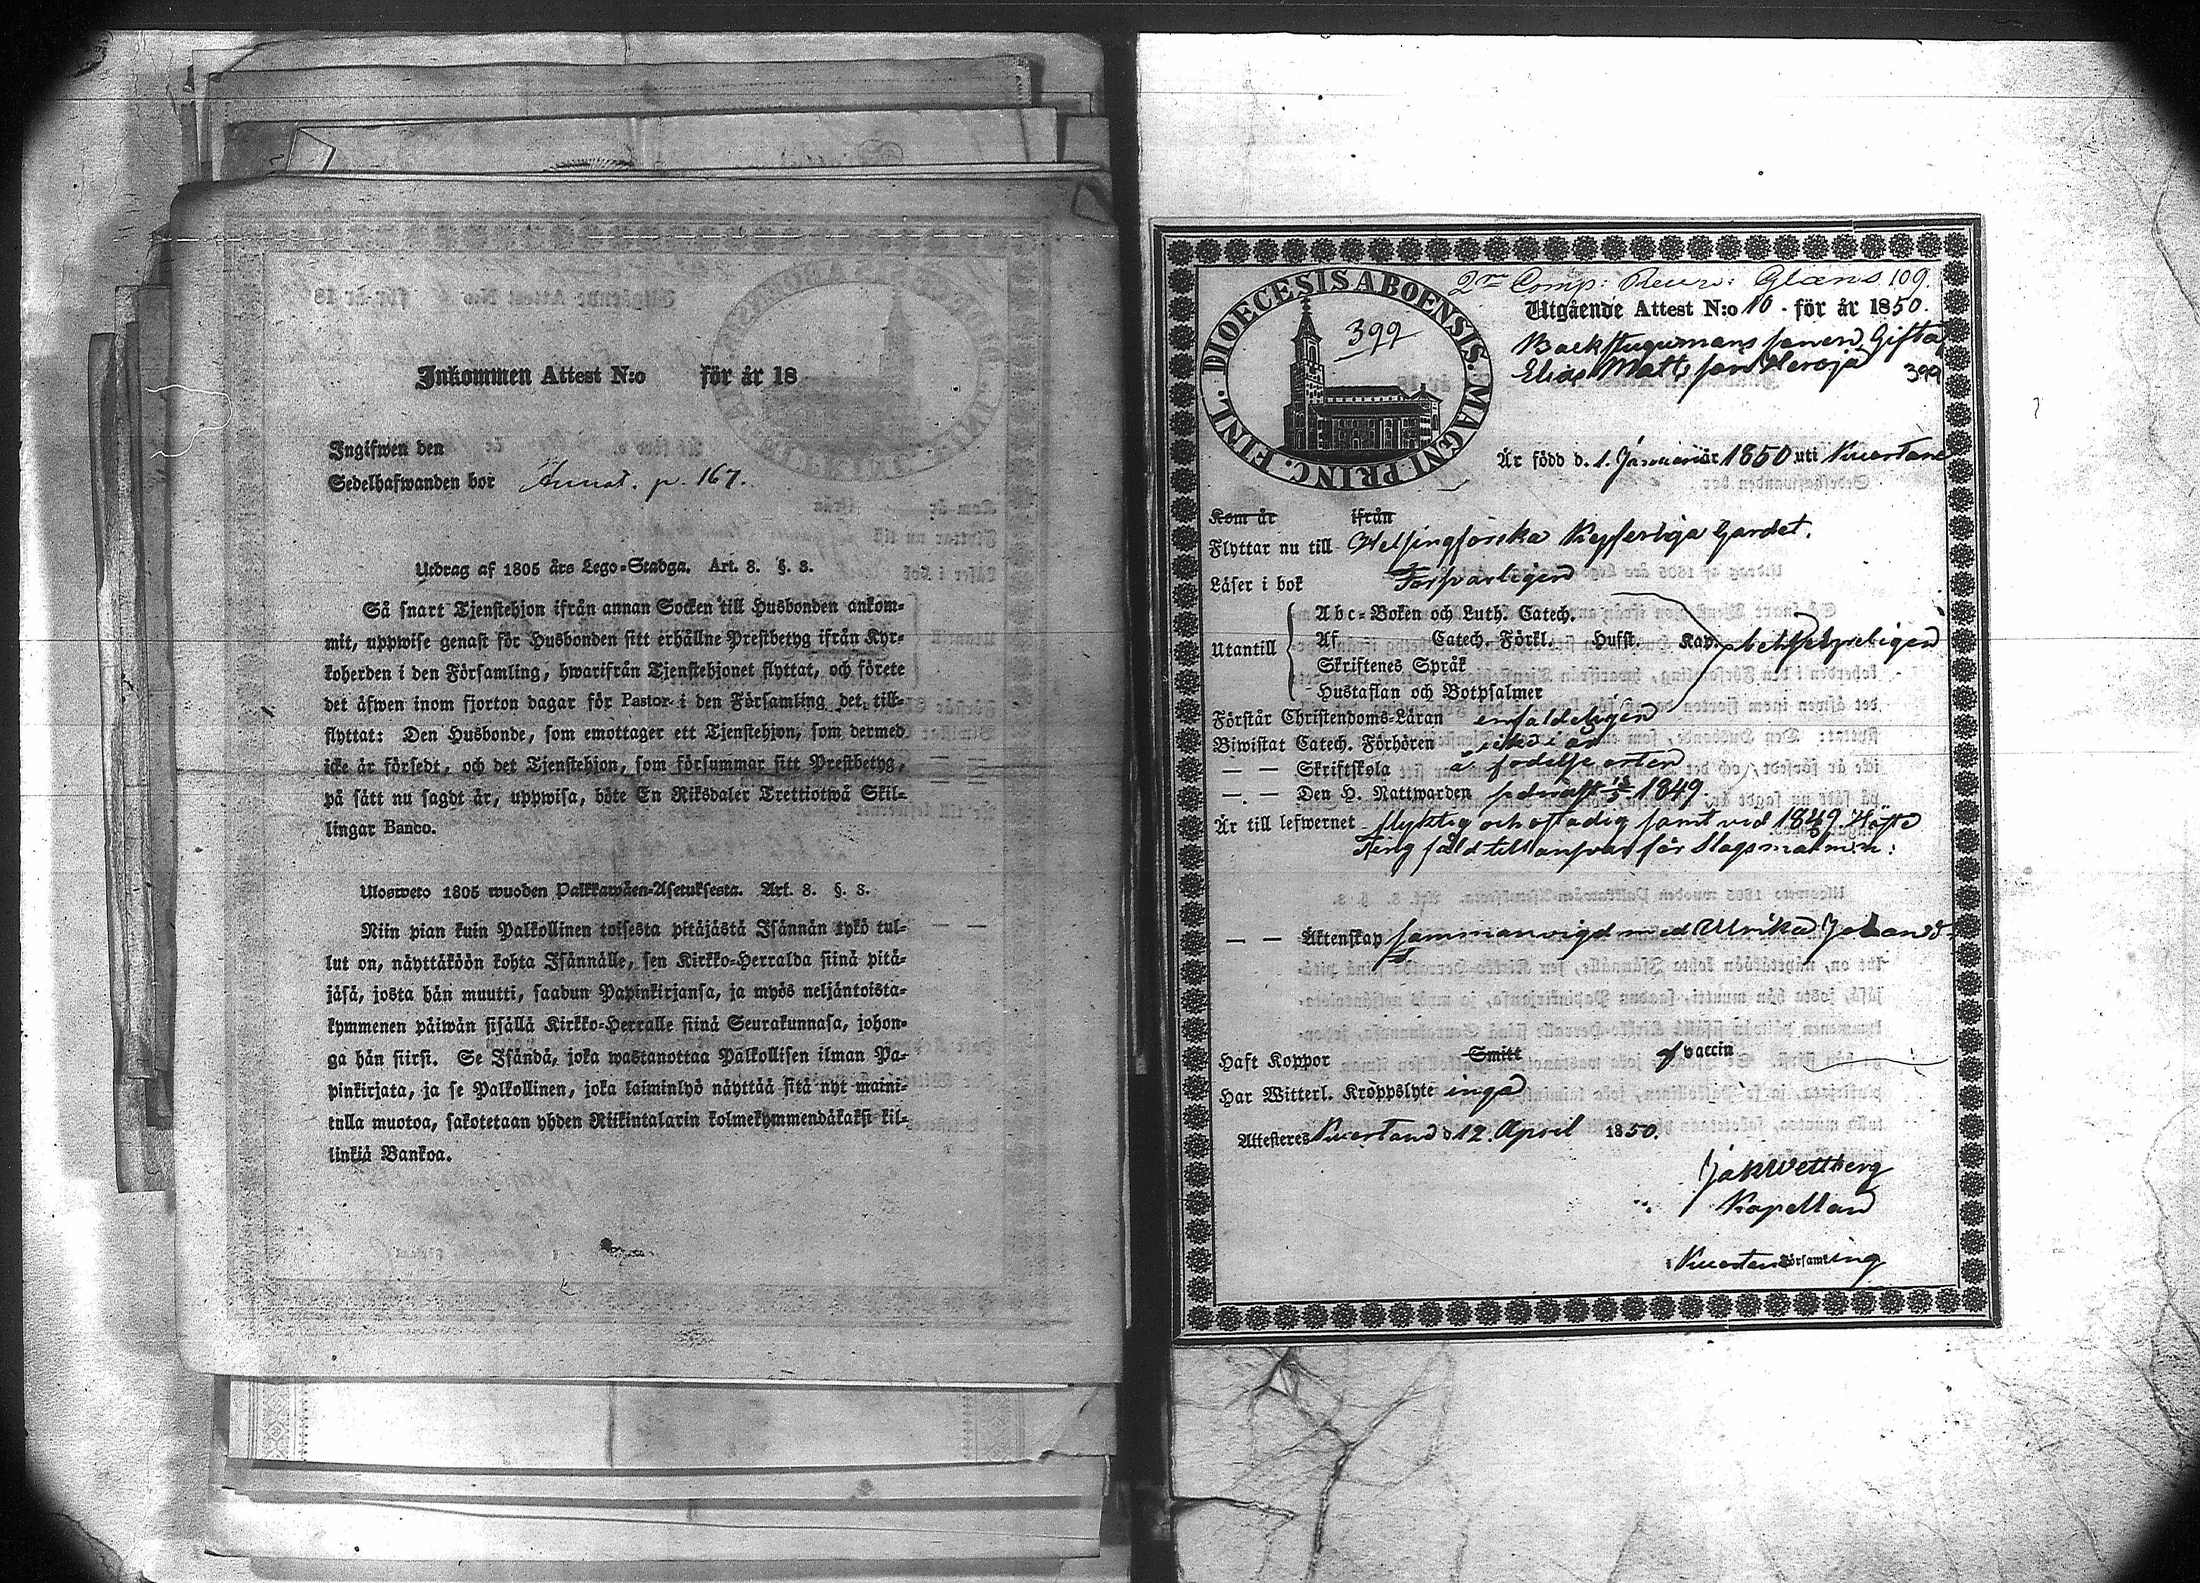 Inkommen Attest N:o för år 18
Ingifwen den
Sedelhafwanden bor Annat. p. 167.
Utdrag af 1805 års Lego-Stadga. Art. 8. §. 3.
Så snart Tjenstehjon ifrån annan Socken till Husbonden ankom-
mit, uppwise genast för Husbonden sitt erhållne Prestbetyg ifrån Kyr-
koherden i den Församling, hwarifrån Tjenstehjonet flyttat, och förete
det äfwen inom fjorton dagar för Pastor i den Församling det till-
flyttat: Den Husbonde, som emottager ett Tjenstehjon, som dermed
icke är försedt, och det Tjenstehjon, som försummar sitt Prestbetyg,
på sätt nu sagdt är, uppwisa, böte En Riksdaler Trettiotwå Skil-
lingar Banco.
Ulosweto 1805 wuoden Palkkawäen-Asetuksesta. Art. 8. §. 3.
Niin pian kuin Palkollinen toisesta pitäjästä Isännän tykö tul-
lut on, näyttäköön kohta Isännälle, sen Kirkko-Herralda siinä pitä-
jäsä, josta hän muutti, saadun Papinkirjansa, ja myös neljäntoista-
kymmenen päiwän sisällä Kirkko-Herralle siinä Seurakunnasa, johon-
ga hän siirsi. Se Isändä, joka wastanottaa Palkollisen ilman Pa-
pinkirjata, ja se Palkollinen, joka laiminlyö näyttää sitä nyt maini-
tulla muotoa, sakotetaan yhden Riikintalarin kolmekymmendäkaksi kil-
linkiä Bankoa.
DIOECESIS ABOENSIS. MAGNI PRINC. FINL.
399
2:re Comp: Glans 109.
Utgående Attest N:o 10. för år 1850.
Backstugumans sonen, Gifta
Elias Mattsson Heroja
399
Är född d. 1. Januari år 1850 uti Kuortane
Kom år ifrån
Flyttar nu till Helsingforska Kejserliga Gardet.
Läser i bok Försvarligen
Utantill
Abc-Boken och Luth. Catech.
Af Catech. Förkl. Hufst. Kap.
Skriftenes Språk
Hustaflan och Botpsalmer
Förstår Christendoms-Läran enfaldeligen
Biwistat Catech. Förhören
— — Skriftskola å födelseorten
— — Den H. Nattwarden sednast 1849.
Är till lefwernet samt vid 1849 Höste
Ting fäld till ansvar för Slagsmål m.m:
— — Äktenskap sammanvigd med Ulrika Johansd:
Haft Koppor Smitt af vaccin
Har Witterl. Kroppslyte inga
Attesteres Kuortane d 12. April 1850.
Jak Wettberg
Kapellan
i Kuortane Församling